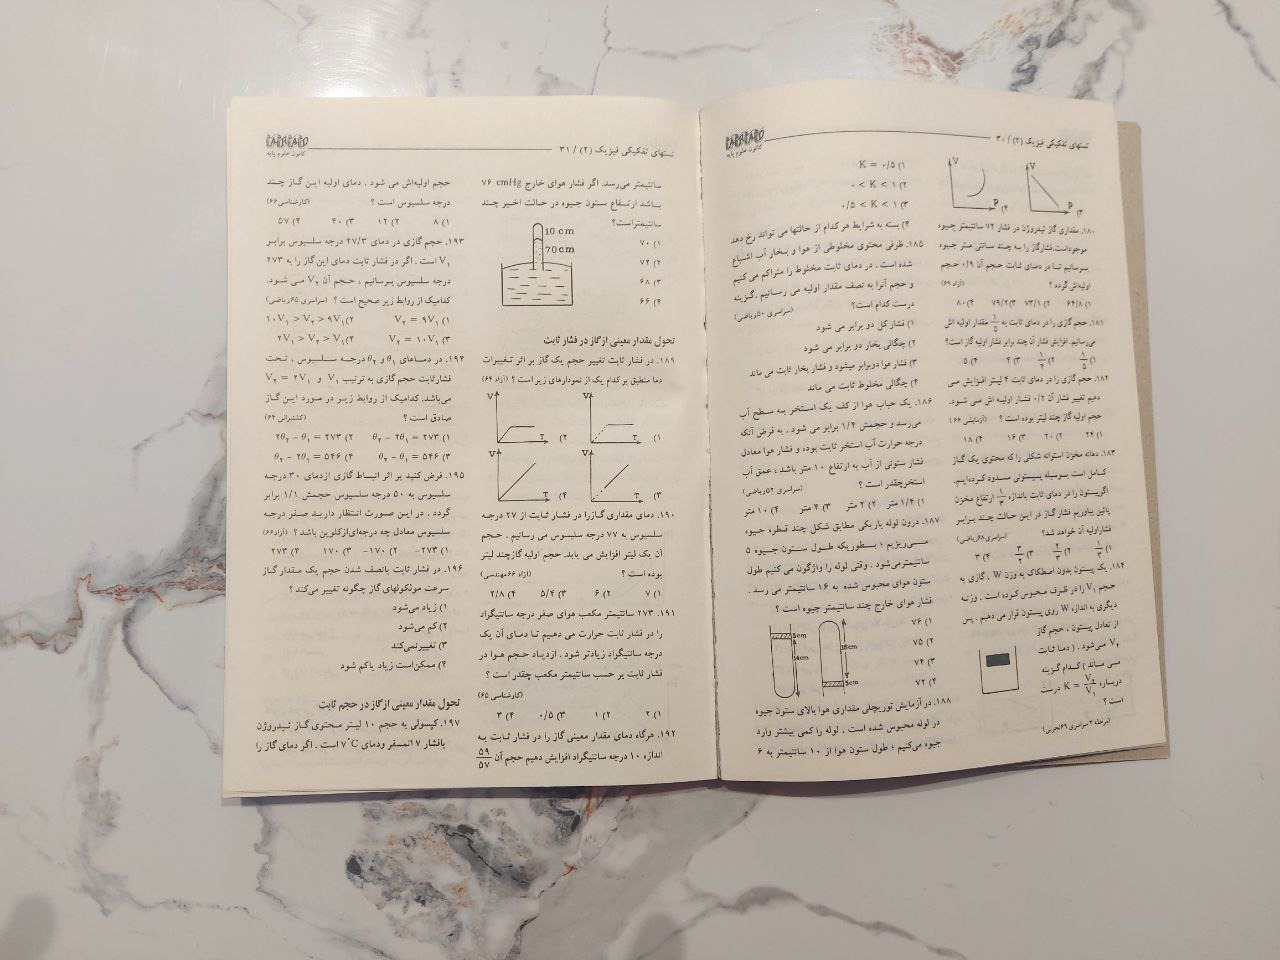 تستهای تفکیکی فیزیک (۲) / ۳۰
کانون علوم پایه
V
P
(۴
V
P
(۳
۱۸۰. مقداری گاز ئیدروژن در فشار ۷۲ سانتیمتر جیوه
موجوداست.فشارگاز را به چند سانتی متر جیوه
برسانیم تا در دمای ثابت حجم آن ۰/۹ حجم
اولیه‌اش گردد ؟ (آزاد ۶۹)
۱) ۶۴/۸ ۲) ۷۳/۱ ۳) ۷۹/۲ ۴) ۸۰
۱۸۱. حجم گازی را در دمای ثابت به ۱/۵ مقدار اولیه اش
می‌رسانیم. افزایش فشار آن چند برابر فشار اولیه گاز است؟
۱) ۱/۵ ۲) ۱/۴ ۳) ۴ ۴) ۵
۱۸۲. حجم گازی را در دمای ثابت ۴ لیتر افزایش می
دهیم تغییر فشار آن ۰/۲ فشار اولیه اش می شود.
حجم اولیه گاز چند لیتر بوده است ؟ (آزمایشی ۶۶)
۱) ۲۴ ۲) ۲۰ ۳) ۱۶ ۴) ۱۸
۱۸۳. دهانه مخزن استوانه شکلی را که محتوی یک گاز
کامل است بوسیله پیستونی مسدود کرده‌ایم.
اگرپیستون را در دمای ثابت باندازه ۱/۳ ارتفاع مخزن
پائین بیاوریم فشار گاز در این حالت چند برابر
فشاراولیه آن خواهد شد؟ (سراسری۶۸ریاضی)
۱) ۱/۲ ۲) ۲/۳ ۳) ۳/۲ ۴) ۳
۱۸۴. یک پیستون بدون اصطکاک به وزن W ، گازی به
حجم V۱ را در ظرف محبوس کرده است . وزنه
دیگری به اندازه W روی پیستون قرار می دهیم . پس
از تعادل پیستون ، حجم گاز
V۲ می‌شود . ( دما ثابت
می ماند ) کدام گزینه
درباره K = V۲/V۱ درست
است ؟
(مرحله ۲سراسری ۶۹تجربی)
۱) K = ۰/۵
۲) ۰ < K < ۱
۳) ۰/۵ < K < ۱
۴) بسته به شرایط هر کدام از حالتها می تواند رخ دهد
۱۸۵. ظرفی محتوی مخلوطی از هوا و بخار آب اشباع
شده است . در دمای ثابت مخلوط را متراکم می کنیم
و حجم آنرا به نصف مقدار اولیه می رسانیم .گزینه
درست کدام است؟ (سراسری ۵۰ریاضی)
۱) فشار کل دو برابر می شود
۲) چگالی بخار دو برابر می شود
۳) فشار هوا دوبرابر میشود و فشار بخار ثابت می ماند
۴) چگالی مخلوط ثابت می ماند
۱۸۶. یک حباب هوا از کف یک استخر به سطح آب
می‌رسد و حجمش ۱/۴ برابر می شود . به فرض آنکه
درجه حرارت آب استخر ثابت بوده و فشار هوا معادل
فشار ستونی از آب به ارتفاع ۱۰ متر باشد ، عمق آب
استخرچقدر است ؟ (سراسری ۵۲ریاضی)
۱) ۱/۴ متر ۲) ۲ متر ۳) ۴ متر ۴) ۱۰ متر
۱۸۷. درون لوله باریکی مطابق شکل چند قطره جیوه
می‌ریزیم ؛ بطوریکه طول ستون جیوه ۵
سانتیمترمی‌شود . وقتی لوله را واژگون می کنیم طول
ستون هوای محبوس شده به ۱۶ سانتیمتر می رسد .
فشار هوای خارج چند سانتیمتر جیوه است ؟
۱) ۷۶
۲) ۷۵
۳) ۷۴
۴) ۷۲
5cm
14cm
16cm
5cm
۱۸۸. در آزمایش توریچلی مقداری هوا بالای ستون جیوه
در لوله محبوس شده است . لوله را کمی بیشتر وارد
جیوه می‌کنیم ؛ طول ستون هوا از ۱۰ سانتیمتر به ۶
تستهای تفکیکی فیزیک (۲) / ۳۱
کانون علوم پایه
سانتیمتر می‌رسد. اگر فشار هوای خارج ۷۶ cmHg
باشد ارتفاع ستون جیوه در حالت اخیر چند
سانتیمتراست؟
۱) ۷۰
۲) ۷۲
۳) ۶۸
۴) ۶۶
10 cm
70cm
تحول مقدار معینی ازگاز در فشار ثابت
۱۸۹. در فشار ثابت تغییر حجم یک گاز بر اثر تغییرات
دما منطبق بر کدام یک از نمودارهای زیر است ؟ (آزاد ۶۴)
V
T
(۱
V
T
(۲
V
T
(۳
V
T
(۴
۱۹۰. دمای مقداری گازرا در فشار ثابت از ۲۷ درجه
سلسیوس به ۷۷ درجه سلیسوس می رسانیم . حجم
آن یک لیتر افزایش می یابد. حجم اولیه گازچند لیتر
بوده است ؟ (آزاد ۶۶مهندسی)
۱) ۷ ۲) ۶ ۳) ۵/۴ ۴) ۲/۸
۱۹۱. ۲۷۳ سانتیمتر مکعب هوای صفر درجه سانتیگراد
را در فشار ثابت حرارت می دهیم تا دمای آن یک
درجه سانتیگراد زیادتر شود . ازدیاد حجم هوا در
فشار ثابت بر حسب سانتیمتر مکعب چقدر است ؟
(کارشناسی ۶۵)
۱) ۲ ۲) ۱ ۳) ۰/۵ ۴) ۳
۱۹۲. هرگاه دمای مقدار معینی گاز را در فشار ثابت به
اندازه ۱۰ درجه سانتیگراد افزایش دهیم حجم آن ۵۹/۵۷
حجم اولیه‌اش می شود . دمای اولیه این گاز چند
درجه سلسیوس است ؟ (کارشناسی۶۶)
۱) ۸ ۲) ۱۲ ۳) ۴۰ ۴) ۵۷
۱۹۳. حجم گازی در دمای ۲۷/۳ درجه سلسیوس برابر
V۱ است . اگر در فشار ثابت دمای این گاز را به ۲۷۳
درجه سلسیوس برسانیم ، حجم آن V۲ می شود.
کدامیک از روابط زیر صحیح است ؟ (سراسری ۶۵ریاضی)
۱) V۲ = ۹V۱ ۲) ۱۰V۱ > V۲ > ۹V۱
۳) V۲ = ۱۰V۱ ۴) ۲V۱ > V۲ > V۱
۱۹۴. در دماهای θ۱ و θ۲ درجه سلسیوس ، تحت
فشارثابت حجم گازی به ترتیب V۱ و V۲ = ۲V۱
می‌باشد. کدامیک از روابط زیر در مورد این گاز
صادق است ؟ (کشتیرانی ۶۴)
۱) θ۲ - ۲θ۱ = ۲۷۳ ۲) ۲θ۲ - θ۱ = ۲۷۳
۳) θ۲ - θ۱ = ۵۴۶ ۴) θ۲ - ۲θ۱ = ۵۴۶
۱۹۵. فرض کنید بر اثر انبساط گازی ازدمای ۳۰ درجه
سلسیوس به ۵۰ درجه سلسیوس حجمش ۱/۱ برابر
گردد . در این صورت انتظار دارید صفر درجه
سلسیوس معادل چه درجه‌ای‌ازکلوین باشد ؟ (آزاد۶۶)
۱) ۲۷۳- ۲) ۱۷۰- ۳) ۱۷۰ ۴) ۲۷۳
۱۹۶. در فشار ثابت بانصف شدن حجم یک مقدار گاز
سرعت مولکولهای گاز چگونه تغییر می‌کند؟
۱) زیاد می‌شود
۲) کم می‌شود
۳) تغییرنمی‌کند
۴) ممکن‌است زیاد یاکم شود
تحول مقدار معینی ازگاز در حجم ثابت
۱۹۷. کپسولی به حجم ۱۰ لیتر محتوی گاز ئیدروژن
بافشار ۷ اتمسفر ودمای ۷°C است . اگر دمای گاز را